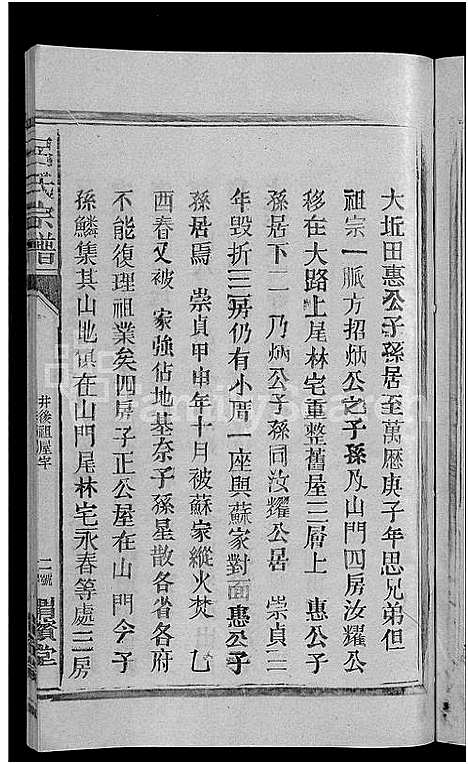 大坵田惠公子孫居至萬曆庚子年思兄弟但
祖宗一脈方招炳公之子孫及山門四房汝耀公
移在大路上尾林宅重整舊屋三層上 惠公子
孫居下二 乃炳公子孫同汝耀公居 崇貞二三
年毀折三房仍有小厝一座與蘇家對面惠公子
孫居焉 崇貞甲申年十月被蘇家縱火焚 乙
酉春又被 家強佔地基奈子孫星散各省各府
不能復理祖業矣四房子正公屋在山門今子
孫鱗集其山地俱在山門尾林宅永春等處三房
呂氏宗譜
井後祖屋字
二號
渭濱堂
familysearch